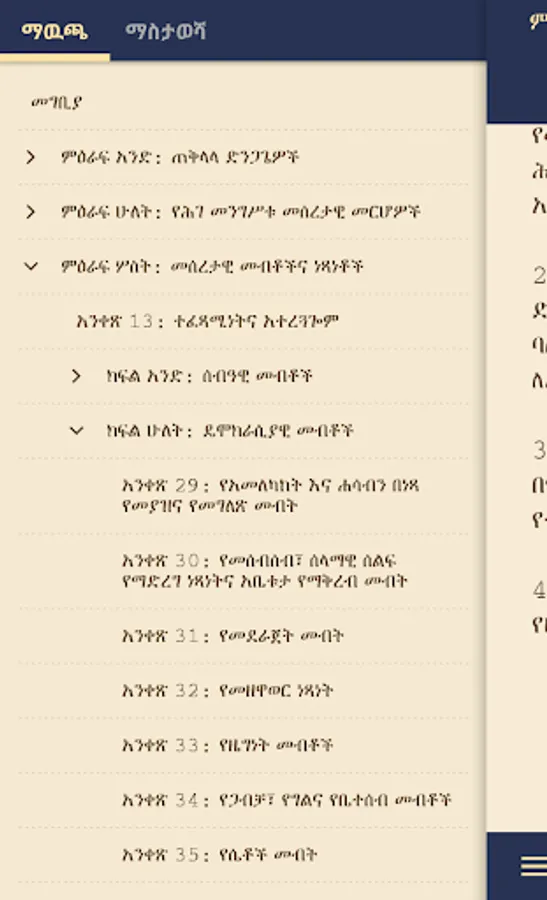 ማዉጫ
ማስታወሻ
መግቢያ
ምዕራፍ አንድ: ጠቅላላ ድንጋጌዎች
ምዕራፍ ሁለት: የሕገ መንግሥቱ መሰረታዊ መርሆዎች
ምዕራፍ ሦስት: መሰረታዊ መብቶችና ነጻነቶች
አንቀጽ 13: ተፈጻሚነትና አተረጓጐም
ክፍል አንድ: ሰብዓዊ መብቶች
ክፍል ሁለት: ዴሞክራሲያዊ መብቶች
አንቀጽ 29: የአመለካከት እና ሐሳብን በነጻ
የመያዝና የመግለጽ መብት
አንቀጽ 30: የመሰብሰብ፣ ሰላማዊ ሰልፍ
የማድረግ ነጻነትና አቤቱታ የማቅረብ መብት
አንቀጽ 31: የመደራጀት መብት
አንቀጽ 32: የመዘዋወር ነጻነት
አንቀጽ 33: የዜግነት መብቶች
አንቀጽ 34: የጋብቻ፣ የግልና የቤተሰብ መብቶች
አንቀጽ 35: የሴቶች መብት
2
3
4